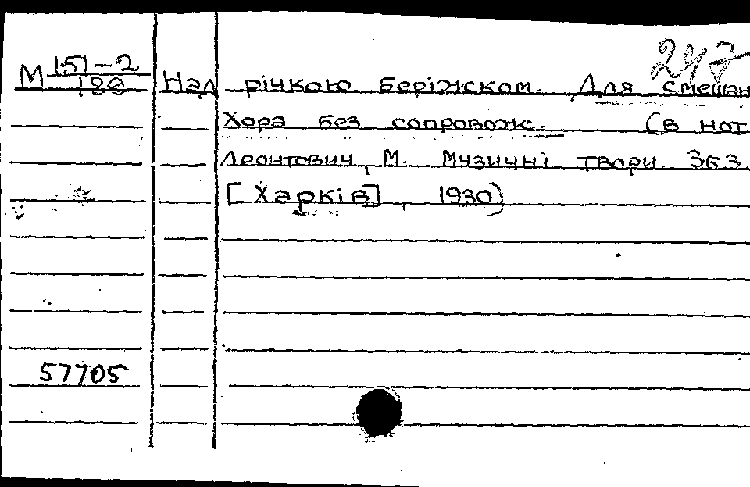 247
М 151-2
122 Над річкою беріжском. Для смешан
Хора без сопровож. (в нот
Леонтович, М. Музичні твори. Зб 3.
[Харків], 1930)
57705